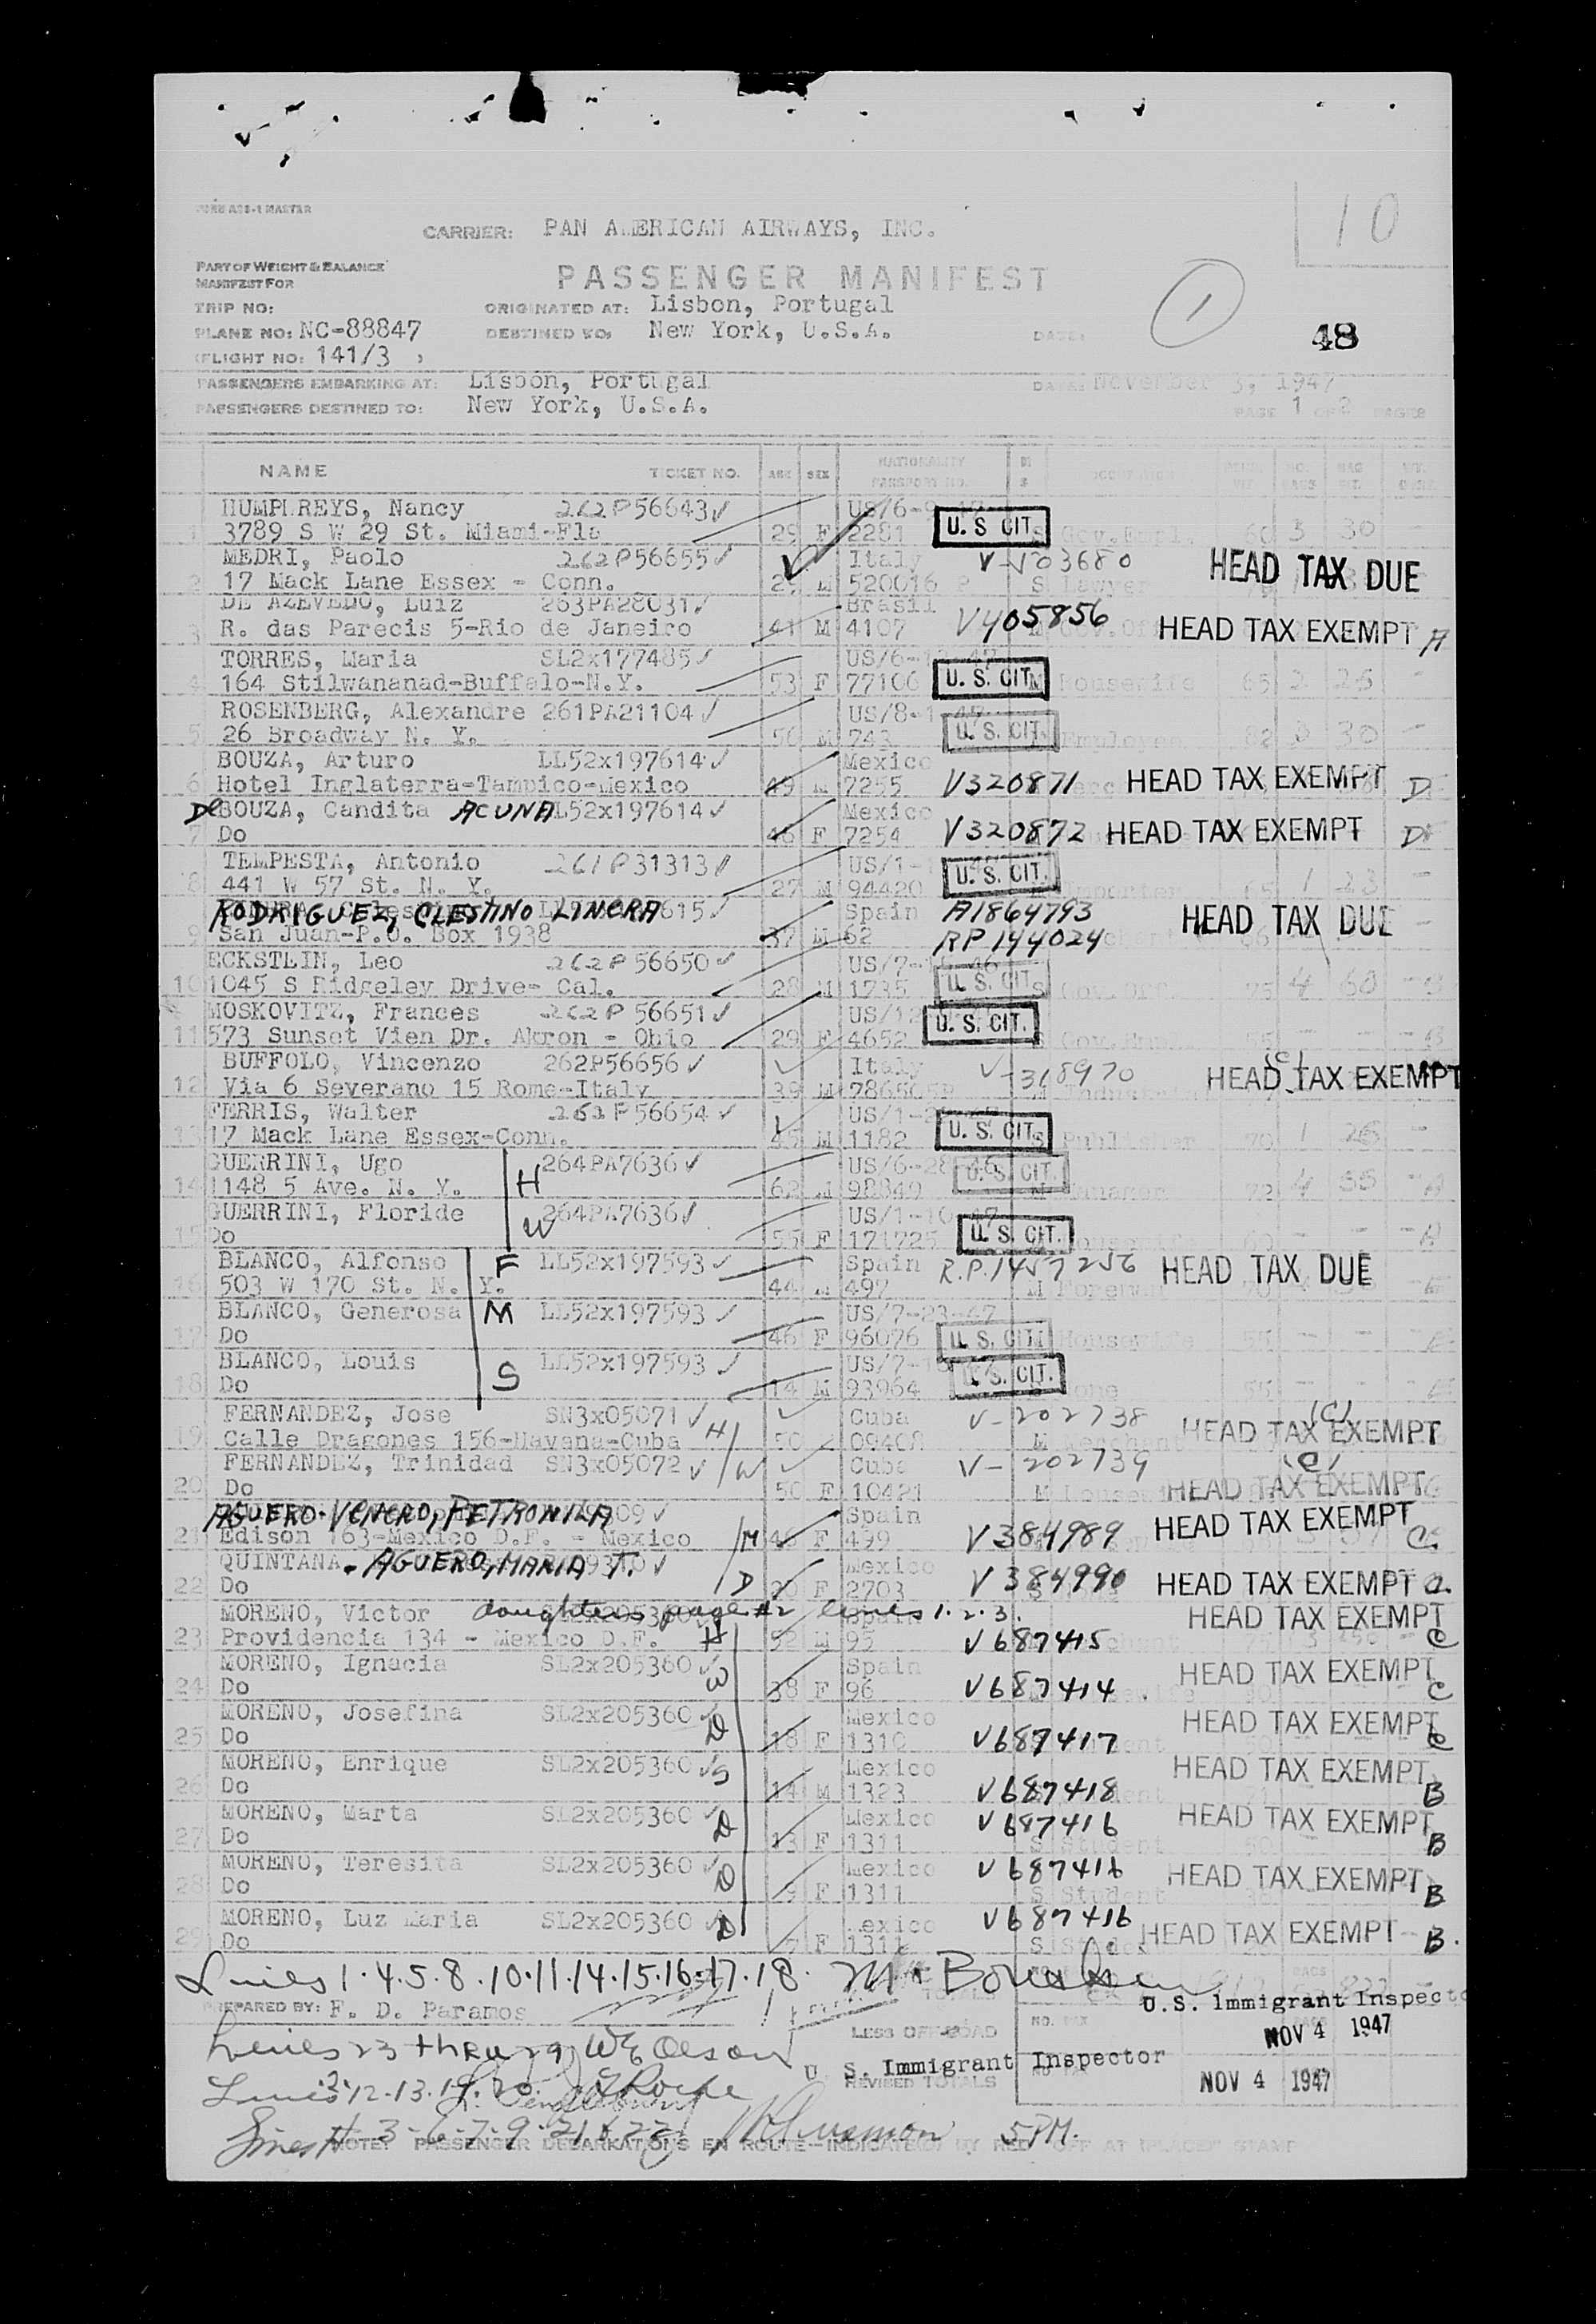 FORM ABS-1 MASTER
10
CARRIER: PAN AMERICAN AIRWAYS, INC.
PART OF WEIGHT & BALANCE
MANIFEST FOR
PASSENGER MANIFEST
1
TRIP NO:
ORIGINATED AT: Lisbon, Portugal
PLANE NO: NC-88847
DESTINED TO: New York, U.S.A.
DATE:
48
(FLIGHT NO: 141/3 )
PASSENGERS EMBARKING AT: Lisbon, Portugal
DATE: November 3, 1947
PASSENGERS DESTINED TO: New York, U.S.A.
PAGE 1 OF 2 PAGES
NAME TICKET NO. AGE SEX NATIONALITY PASSPORT NO. OCCUPATION
HUMPHREYS, Nancy 262P56643 US/6-9-47
1 3789 S W 29 St. Miami-Fla 29 F 2281 U. S CIT. S Gov.Empl. 60 3 30 -
MEDRI, Paolo 262P56655 Italy V-103680 HEAD TAX DUE
2 17 Mack Lane Essex - Conn. 29 M 520016 P S Lawyer
DE AZEVEDO, Luiz 263PA28031 Brasil V405856
3 R. das Parecis 5-Rio de Janeiro 41 M 4107 HEAD TAX EXEMPT A
TORRES, Maria SL2x177485
4 164 Stilwananad-Buffalo-N.Y. 53 F 77106 U. S. CIT. M Housewife 65 2 26 -
ROSENBERG, Alexandre 261PA21104
5 26 Broadway N. Y. 56 M 743 U. S. CIT. Employee 82 3 30 -
BOUZA, Arturo LL52x197614 Mexico
6 Hotel Inglaterra-Tampico-Mexico 49 M 7255 V320871 HEAD TAX EXEMPT D
De BOUZA, Candita ACUNA LL52x197614 Mexico
7 Do 46 F 7254 V320872 HEAD TAX EXEMPT D
TEMPESTA, Antonio 261P31313
8 441 W 57 St. N. Y. 27 M 94420 U. S. CIT. Importer 65 1 23 -
RODRIGUEZ, CLESTINO LINERA Spain A1864793 HEAD TAX DUE
9 San Juan-P.O. Box 1938 37 M 62 RP 144024
ECKSTLIN, Leo 262P56650
10 1045 S Ridgeley Drive- Cal. 28 M 1735 U. S. CIT. S Gov.Off. 75 4 60
MOSKOVITZ, Frances 262P56651
11 573 Sunset Vien Dr. Akron - Ohio 29 F 4652 U. S. CIT. Gov.Empl.
BUFFOLO, Vincenzo 262P56656 Italy V-318970 (C)
12 Via 6 Severano 15 Rome-Italy 39 M HEAD TAX EXEMPT
FERRIS, Walter 262P56654
13 17 Mack Lane Essex-Conn. 45 M 1182 U. S. CIT. S Publisher 70 1 26 -
GUERRINI, Ugo H 264PA7636 US/6-28-46
14 1148 5 Ave. N. Y. 62 M 98840 U. S. CIT. Manager 72 4 55 - A
GUERRINI, Floride W 264PA7636 US/1-10-47
15 Do 55 F 171725 U. S. CIT. Housewife
BLANCO, Alfonso F LL52x197593 Spain R.P.1457256 HEAD TAX DUE
16 503 W 170 St. N. Y. 44 M 497 M Foreman
BLANCO, Generosa M LL52x197593 US/7-23-47
17 Do 46 F 96076 U. S. CIT. Housewife 55 - - E
BLANCO, Louis S LL52x197593
18 Do 14 M 93964 U. S. CIT. None 55 - - E
FERNANDEZ, Jose SN3x05071 H Cuba V-202738 (C)
19 Calle Dragones 156-Havana-Cuba 50 09408 M Merchant HEAD TAX EXEMPT
FERNANDEZ, Trinidad SN3x05072 W Cuba V-202739 (C)
20 Do 50 F 10421 M Housewife HEAD TAX EXEMPT
AGUERO-VENERO, PETRONILA Spain HEAD TAX EXEMPT
21 Edison 163-Mexico D.F. - Mexico M 46 F 499 V384989 C.
QUINTANA - AGUERO, MARIA T. Mexico
22 Do D 20 F 2703 V384990 HEAD TAX EXEMPT
MORENO, Victor daughters page #2 lines 1.2.3. Spain HEAD TAX EXEMPT
23 Providencia 134 - Mexico D.F. H 52 M 95 V687415 C
MORENO, Ignacia SL2x205360 W Spain HEAD TAX EXEMPT
24 Do 38 F 96 V687414 C
MORENO, Josefina SL2x205360 D Mexico HEAD TAX EXEMPT
25 Do 18 F 1310 V687417 C
MORENO, Enrique SL2x205360 S Mexico HEAD TAX EXEMPT
26 Do 14 M 1323 V687418 B
MORENO, Marta SL2x205360 D Mexico V687416 HEAD TAX EXEMPT
27 Do 13 F 1311 S Student B
MORENO, Teresita SL2x205360 D Mexico V687416 HEAD TAX EXEMPT
28 Do 9 F 1311 S Student B
MORENO, Luz Maria SL2x205360 D Mexico V687416 HEAD TAX EXEMPT
29 Do 7 F 1311 S Student B.
Lines 1.4.5.8.10.11.14.15.16.17.18.
TOTALS
U.S. Immigrant Inspector
PREPARED BY: F. D. Paramos
NOV 4 1947
LESS OFF-LOAD
Lines 23 thru 29 W E Olson
U. S. Immigrant Inspector
REVISED TOTALS
NOV 4 1947
Lines 2.12.13.19.20.
Lines # 3-6-7-9-21&22 5 PM.
NOTE: PASSENGER DEBARKATIONS EN ROUTE-INDICATED BY RED "OFF AT (PLACE)" STAMP